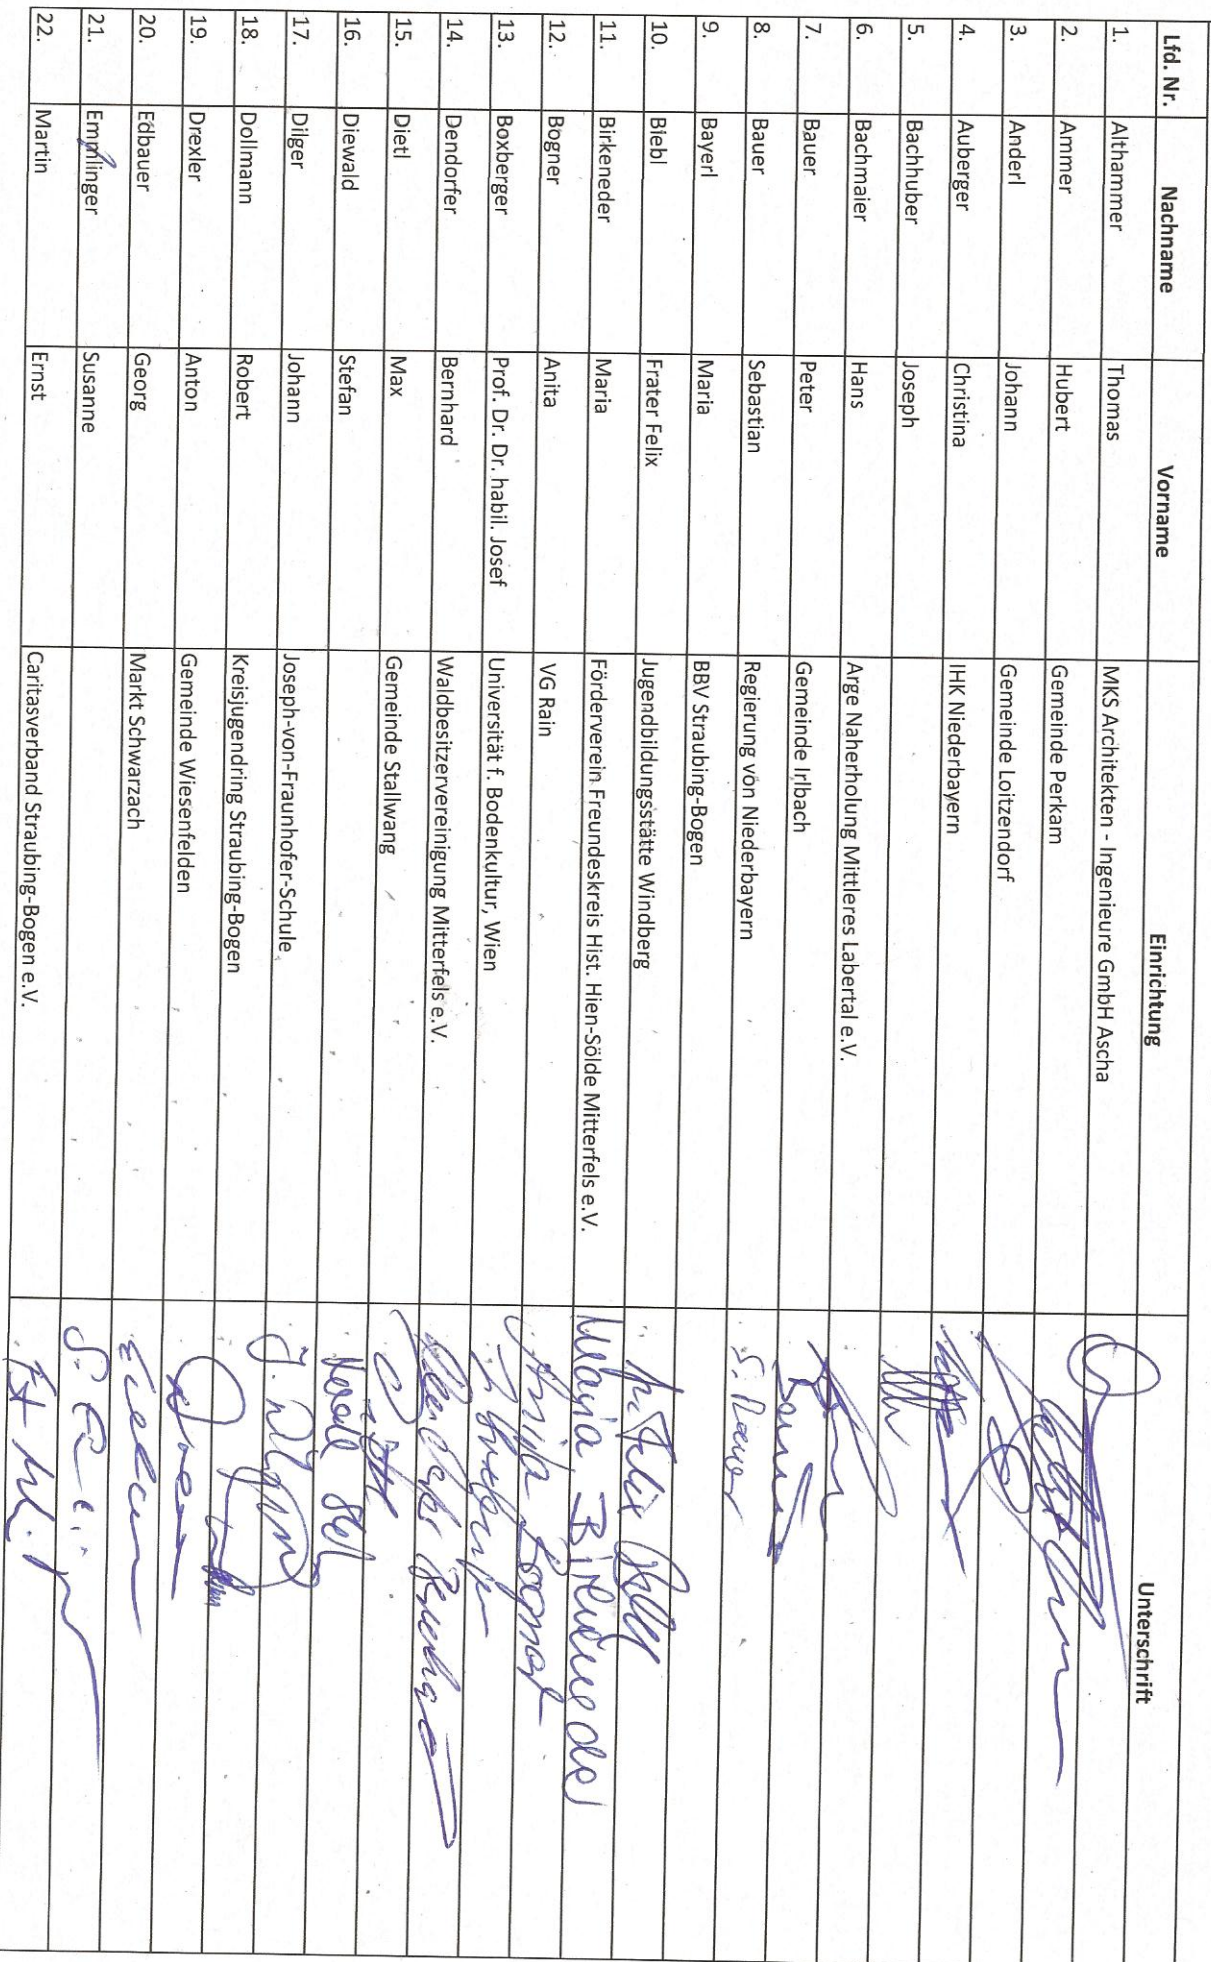 Lfd. Nr. Nachname Vorname Einrichtung Unterschrift
1. Althammer Thomas MKS Architekten - Ingenieure GmbH Ascha
2. Ammer Hubert Gemeinde Perkam
3. Anderl Johann Gemeinde Loitzendorf
4. Auberger Christina IHK Niederbayern
5. Bachhuber Joseph
6. Bachmaier Hans Arge Naherholung Mittleres Labertal e.V.
7. Bauer Peter Gemeinde Irlbach
8. Bauer Sebastian Regierung von Niederbayern S. Bauer
9. Bayerl Maria BBV Straubing-Bogen
10. Biebl Frater Felix Jugendbildungsstätte Windberg
11. Birkeneder Maria Förderverein Freundeskreis Hist. Hien-Sölde Mitterfels e.V. Maria Birkeneder
12. Bogner Anita VG Rain Anita Bogner
13. Boxberger Prof. Dr. Dr. habil. Josef Universität f. Bodenkultur, Wien
14. Dendorfer Bernhard Waldbesitzervereinigung Mitterfels e.V. Dendorfer Bernhard
15. Dietl Max Gemeinde Stallwang
16. Diewald Stefan
17. Dilger Johann Joseph-von-Fraunhofer-Schule J. Dilger
18. Dollmann Robert Kreisjugendring Straubing-Bogen
19. Drexler Anton Gemeinde Wiesenfelden
20. Edbauer Georg Markt Schwarzach
21. Emmlinger Susanne
22. Martin Ernst Caritasverband Straubing-Bogen e.V.